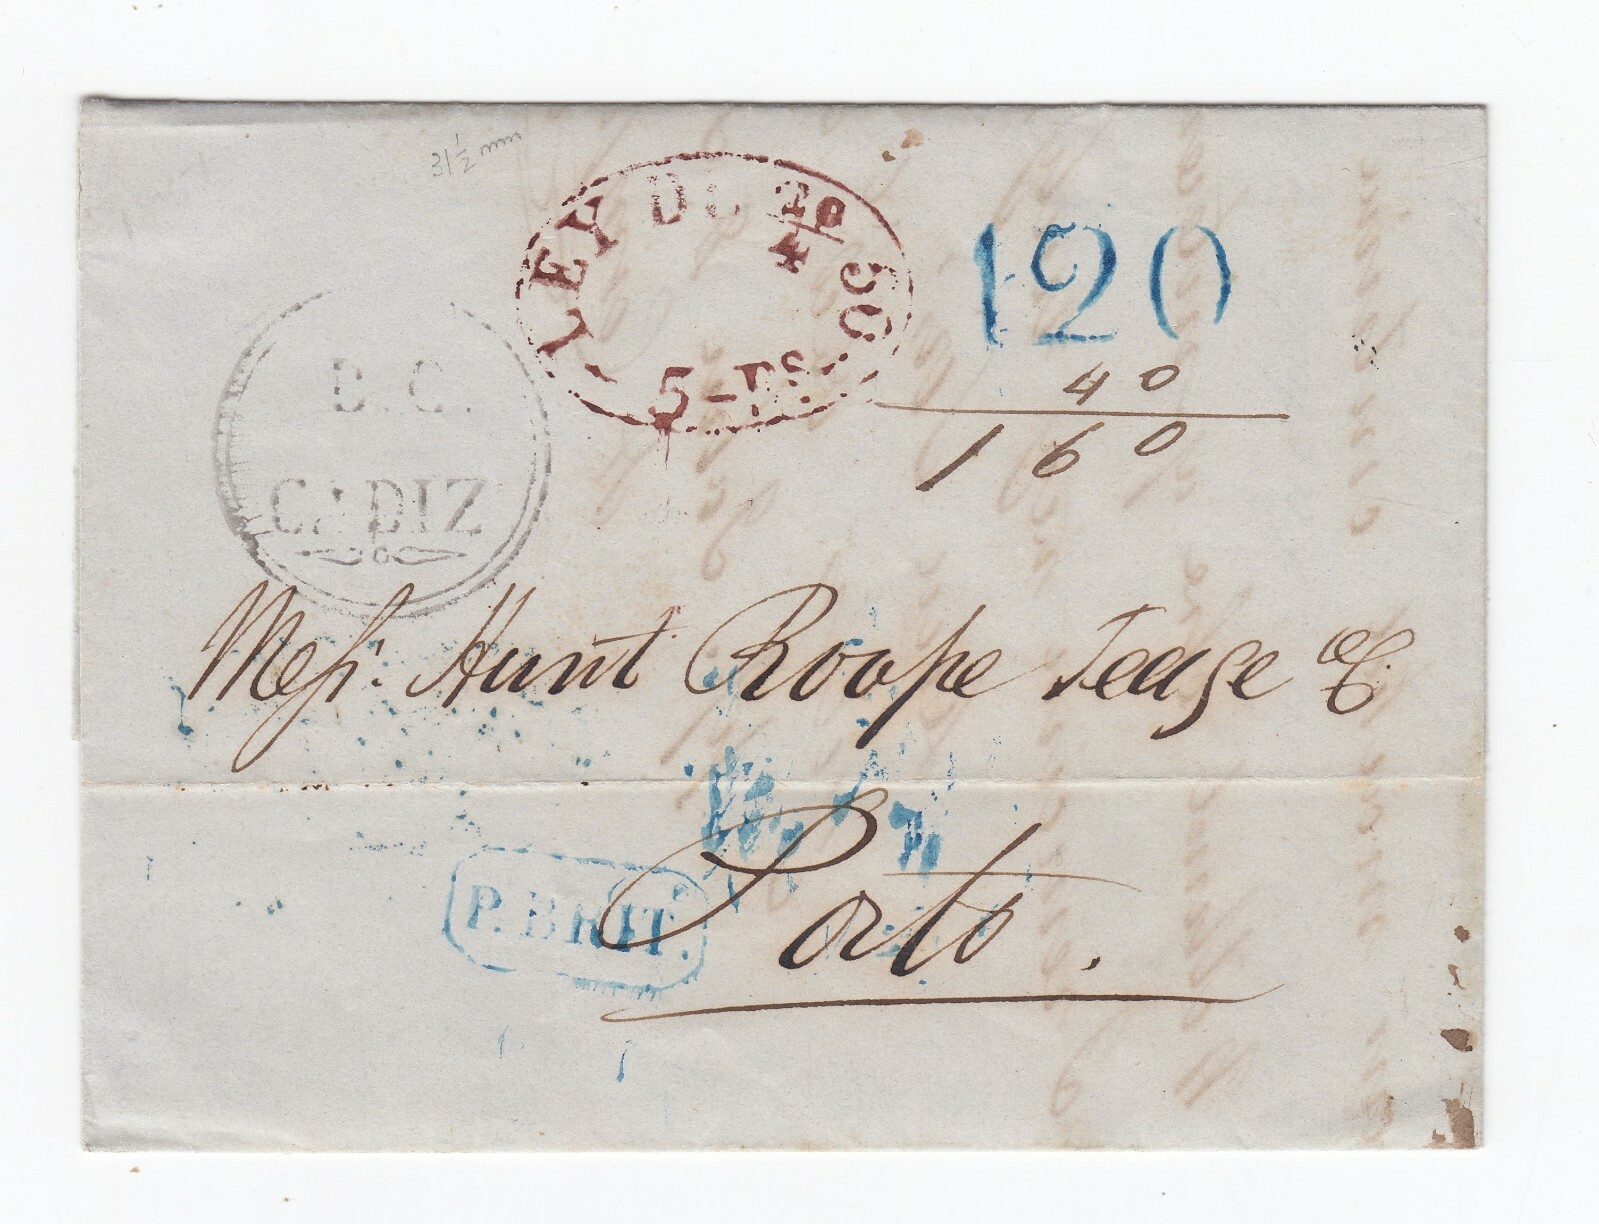 31 1/2 mm
LEY DE 20/4 50
5-Ps
120
40
160
B.C.
CADIZ
Messrs. Hunt Roope Teage &C.
Porto.
P. BRIT.